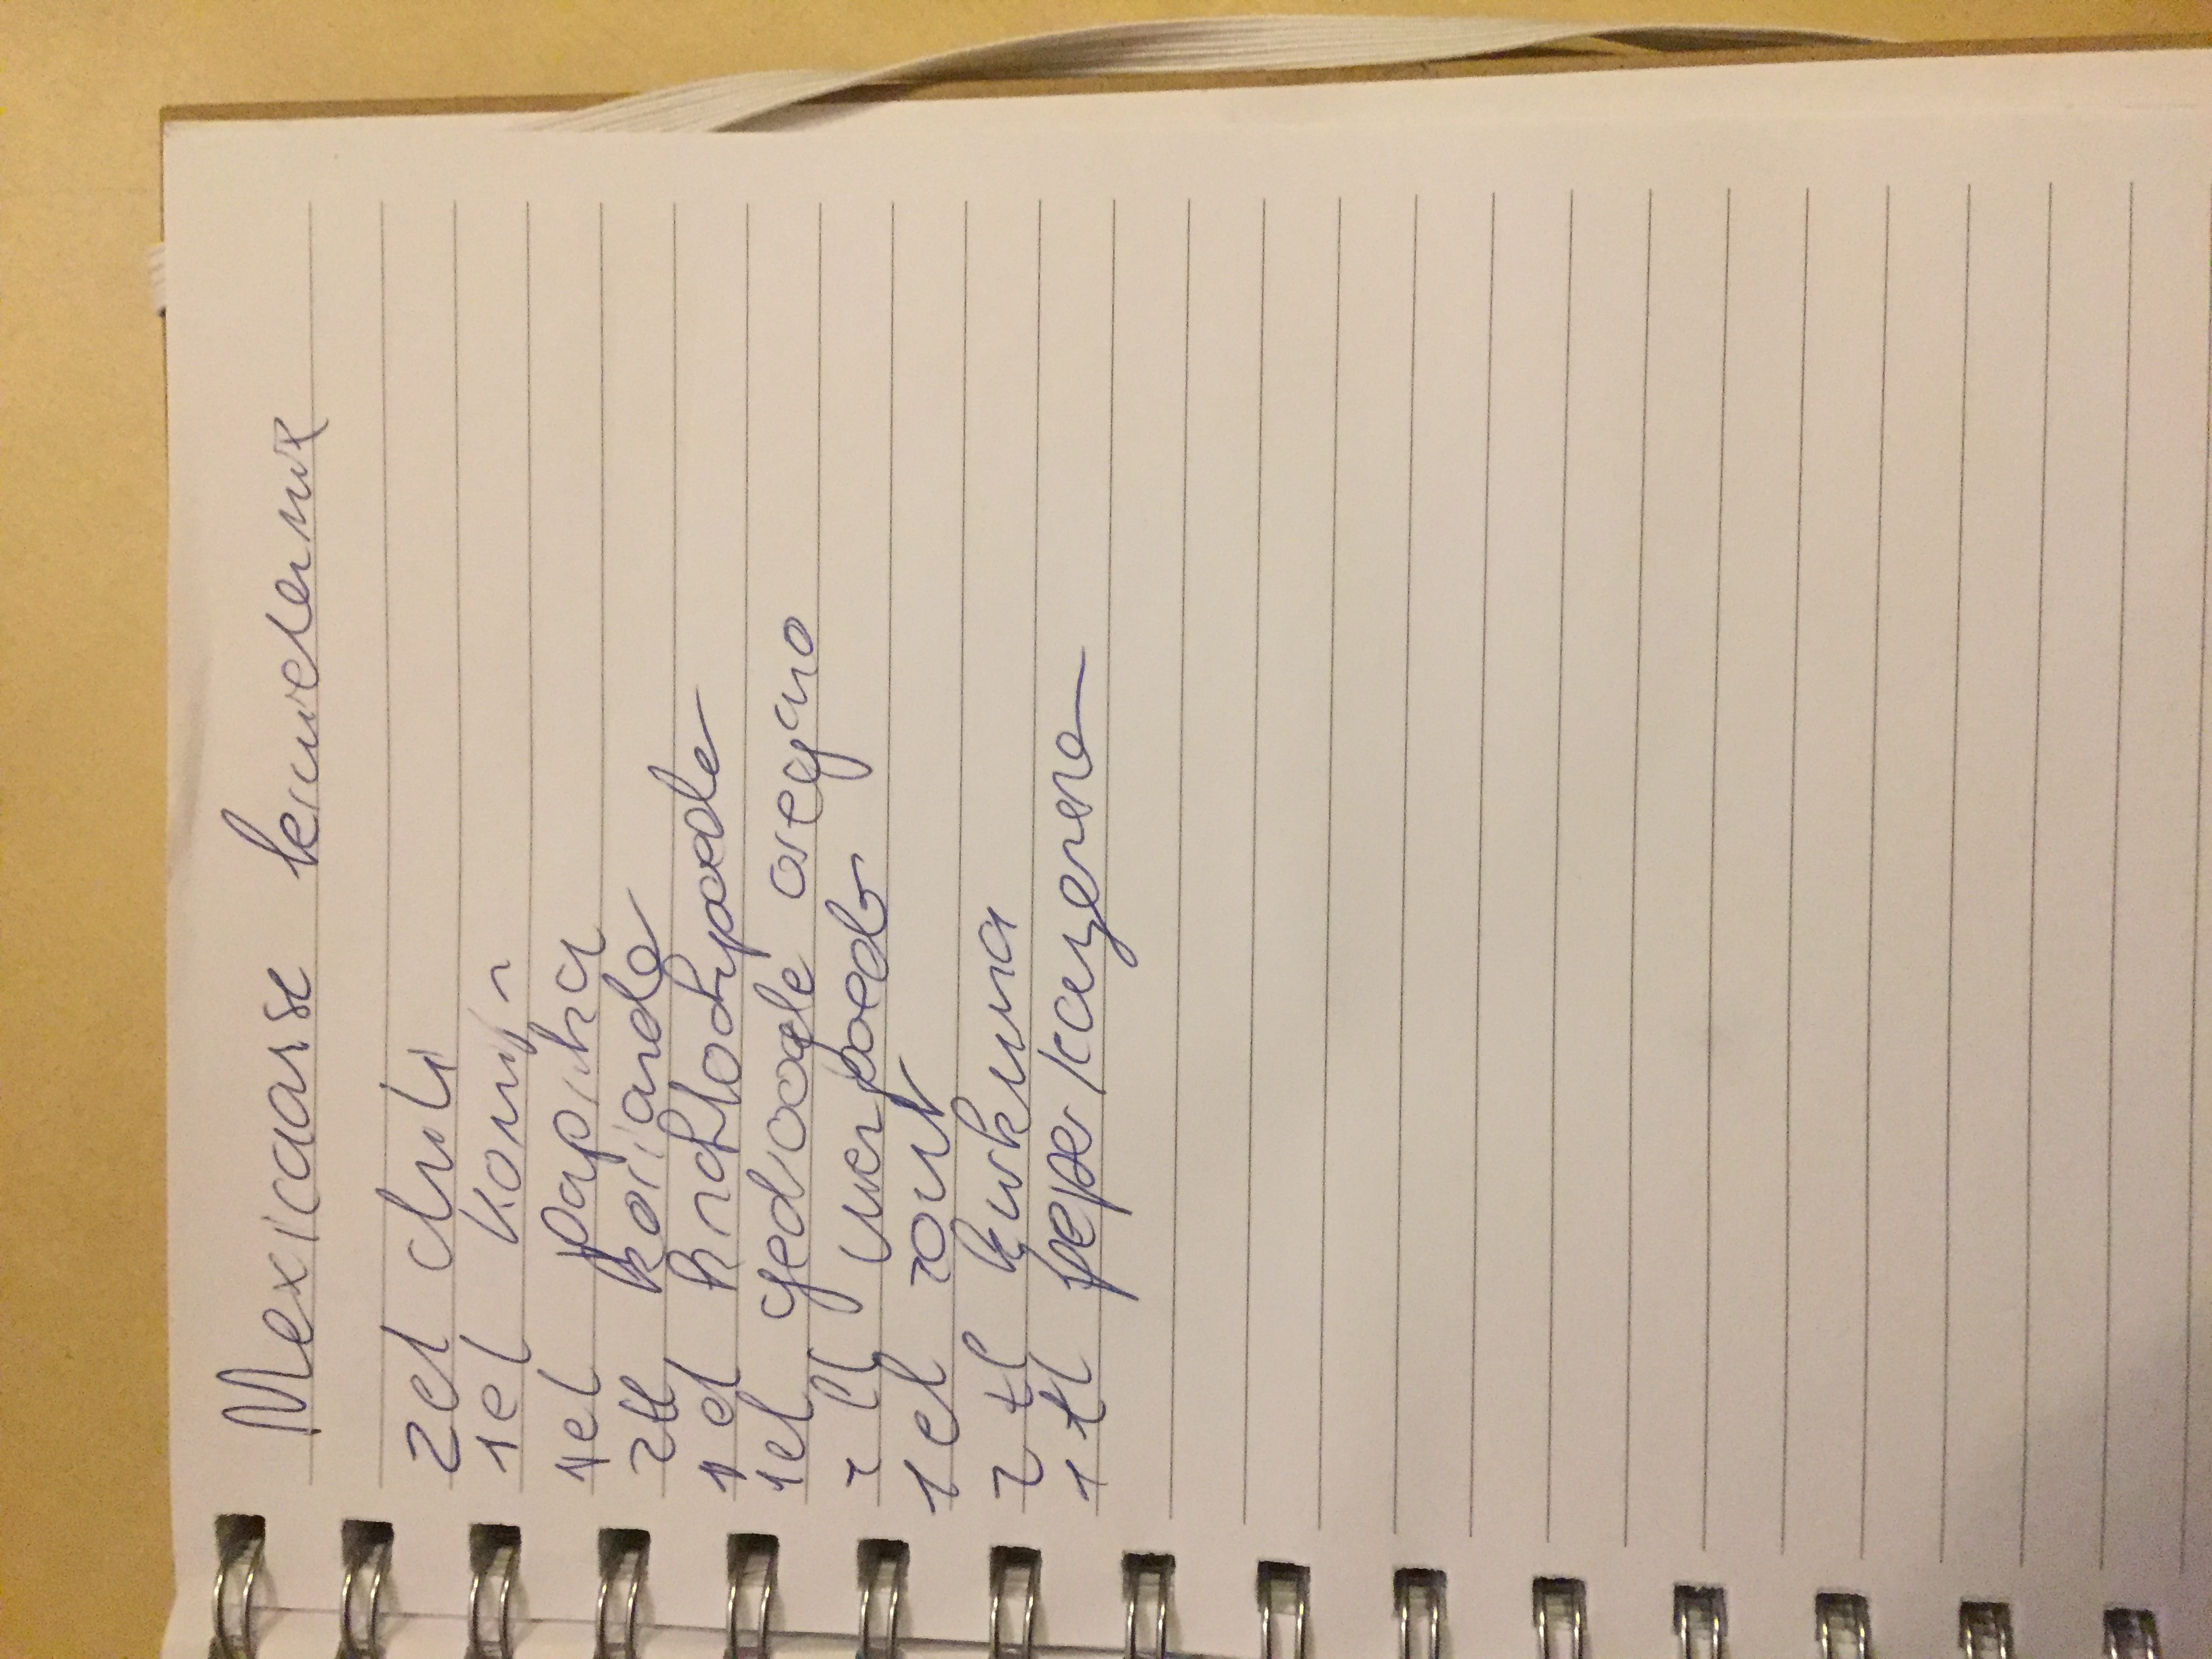 Mexicaanse kruidenmix
2el chili
1el komijn
1el paprika
2tl koriander
1el knoflookpoeder
1el gedroogde oregano
2 tl uienpoeder
1el zout
2 tl kurkuma
1 tl peper/cayenne